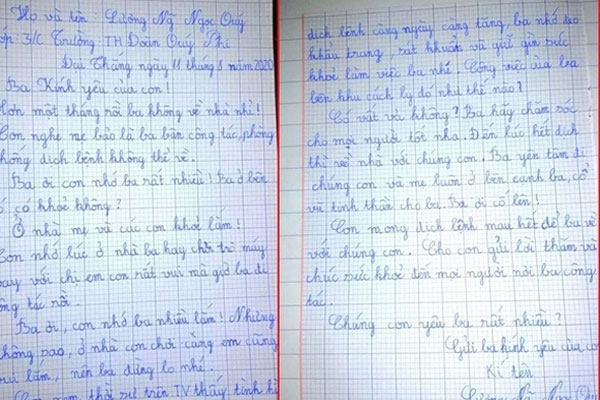 Họ và tên Lương Ngọc Quý
Lớp: 3/C Trường: TH Đoàn Quý Phi
Đại Thắng ngày 11 tháng 8 năm 2020
Ba Kính yêu của con!
Hơn một tháng rồi ba không về nhà nhỉ!
Con nghe mẹ bảo là ba bận công tác, phòng
chống dịch bệnh không thể về.
Ba ơi con nhớ ba rất nhiều! Ba ở bên
có khoẻ không?
Ở nhà mẹ và các con khoẻ lắm!
Con nhớ lúc ở nhà ba hay chơi trò máy
bay với chị em con rất vui mà giờ ba đi
công tác rồi.
Ba ơi, con nhớ ba nhiều lắm! Nhưng
không sao, ở nhà con chơi cùng em cũng
vui lắm, nên ba đừng lo nhé.
thời sự trên TV thấy tình hì
dịch bệnh càng ngày càng tăng, ba nhớ đeo
khẩu trang, sát khuẩn và giữ gìn sức
khoẻ làm việc ba nhé. Công việc của ba
bên khu cách ly đó như thế nào?
Có vất vả không? Ba hãy chăm sóc
cho mọi người tốt nha. Đến lúc hết dịch
thì về nhà với chúng con. Ba yên tâm đi
chúng con và mẹ luôn ở bên cạnh ba, cổ
vũ tinh thần cho ba. Ba ơi cố lên!
Con mong dịch bệnh mau hết để ba về
với chúng con. Cho con gửi lời thăm và
chúc sức khoẻ đến mọi người nơi ba công
tác.
Chúng con yêu ba rất nhiều?
Gửi ba kính yêu của co
Kí tên
Lương Ngọc Quý